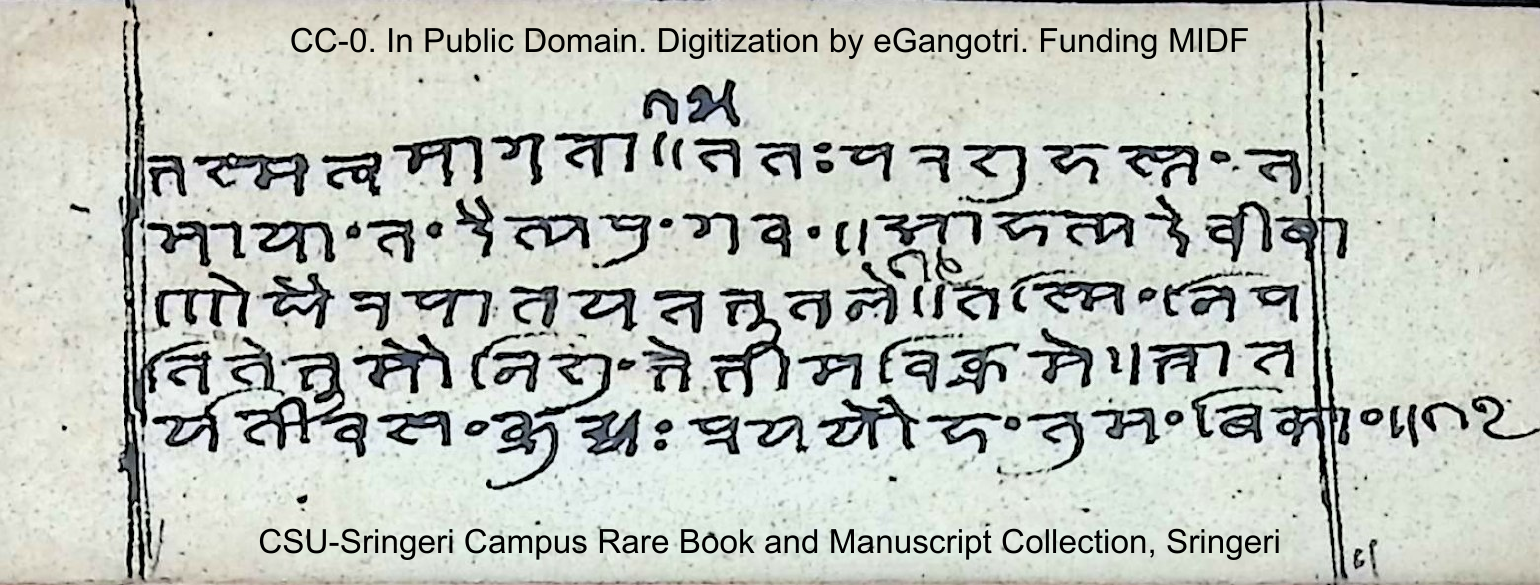 CC-0. In Public Domain. Digitization by eGangotri. Funding MIDF
१५
भस्मत्वमागता ॥ ततः परशुहस्तं त
मायांतं दैत्यपुंगवं ॥ आहत्य देवी बा
१६
णौघैरपातयत भूतले ॥ तस्मिंनिप
तिते भूमौ निशुंभे भीमविक्रमे ॥ भ्रात
र्यतीव संक्रुद्धः प्रययौ हंतुमंबिकां ॥१७
CSU-Sringeri Campus Rare Book and Manuscript Collection, Sringeri